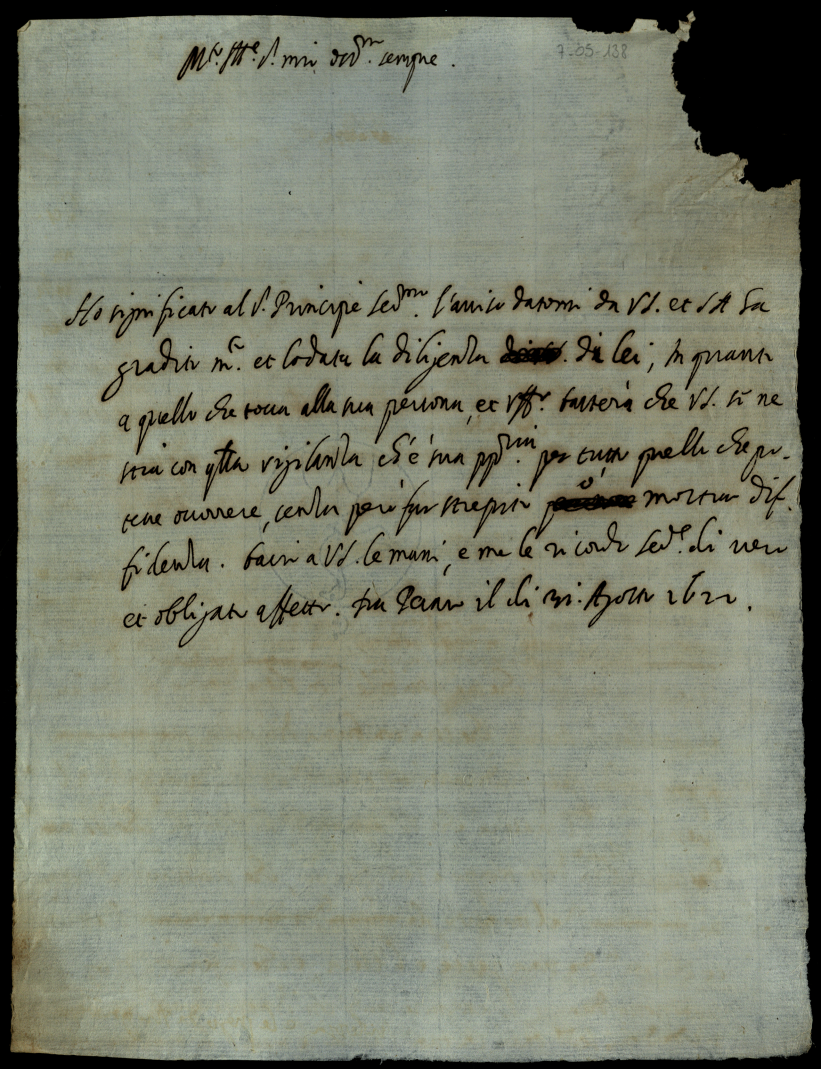 7-05-138
M.to Ill.e S.r mio oss.mo sempre.
Ho significato al S.r Principe Ser.mo l'aviso datomi da VS. et SA ha
gradito m.to et lodata la diligenza di lei, In quanto
a quello che tocca alla sua persona, et uff.o basterà che VS. se ne
stia con q.lla vigilanza ch'è sua pp.ria per tutto quello che po-
tesse occorrere, senza però far strepito ò mostrar dif-
fidenza. Bacio a VS. le mani, e me le ricordo Ser.e di vero
et obligato affetto. Agosto 1622.